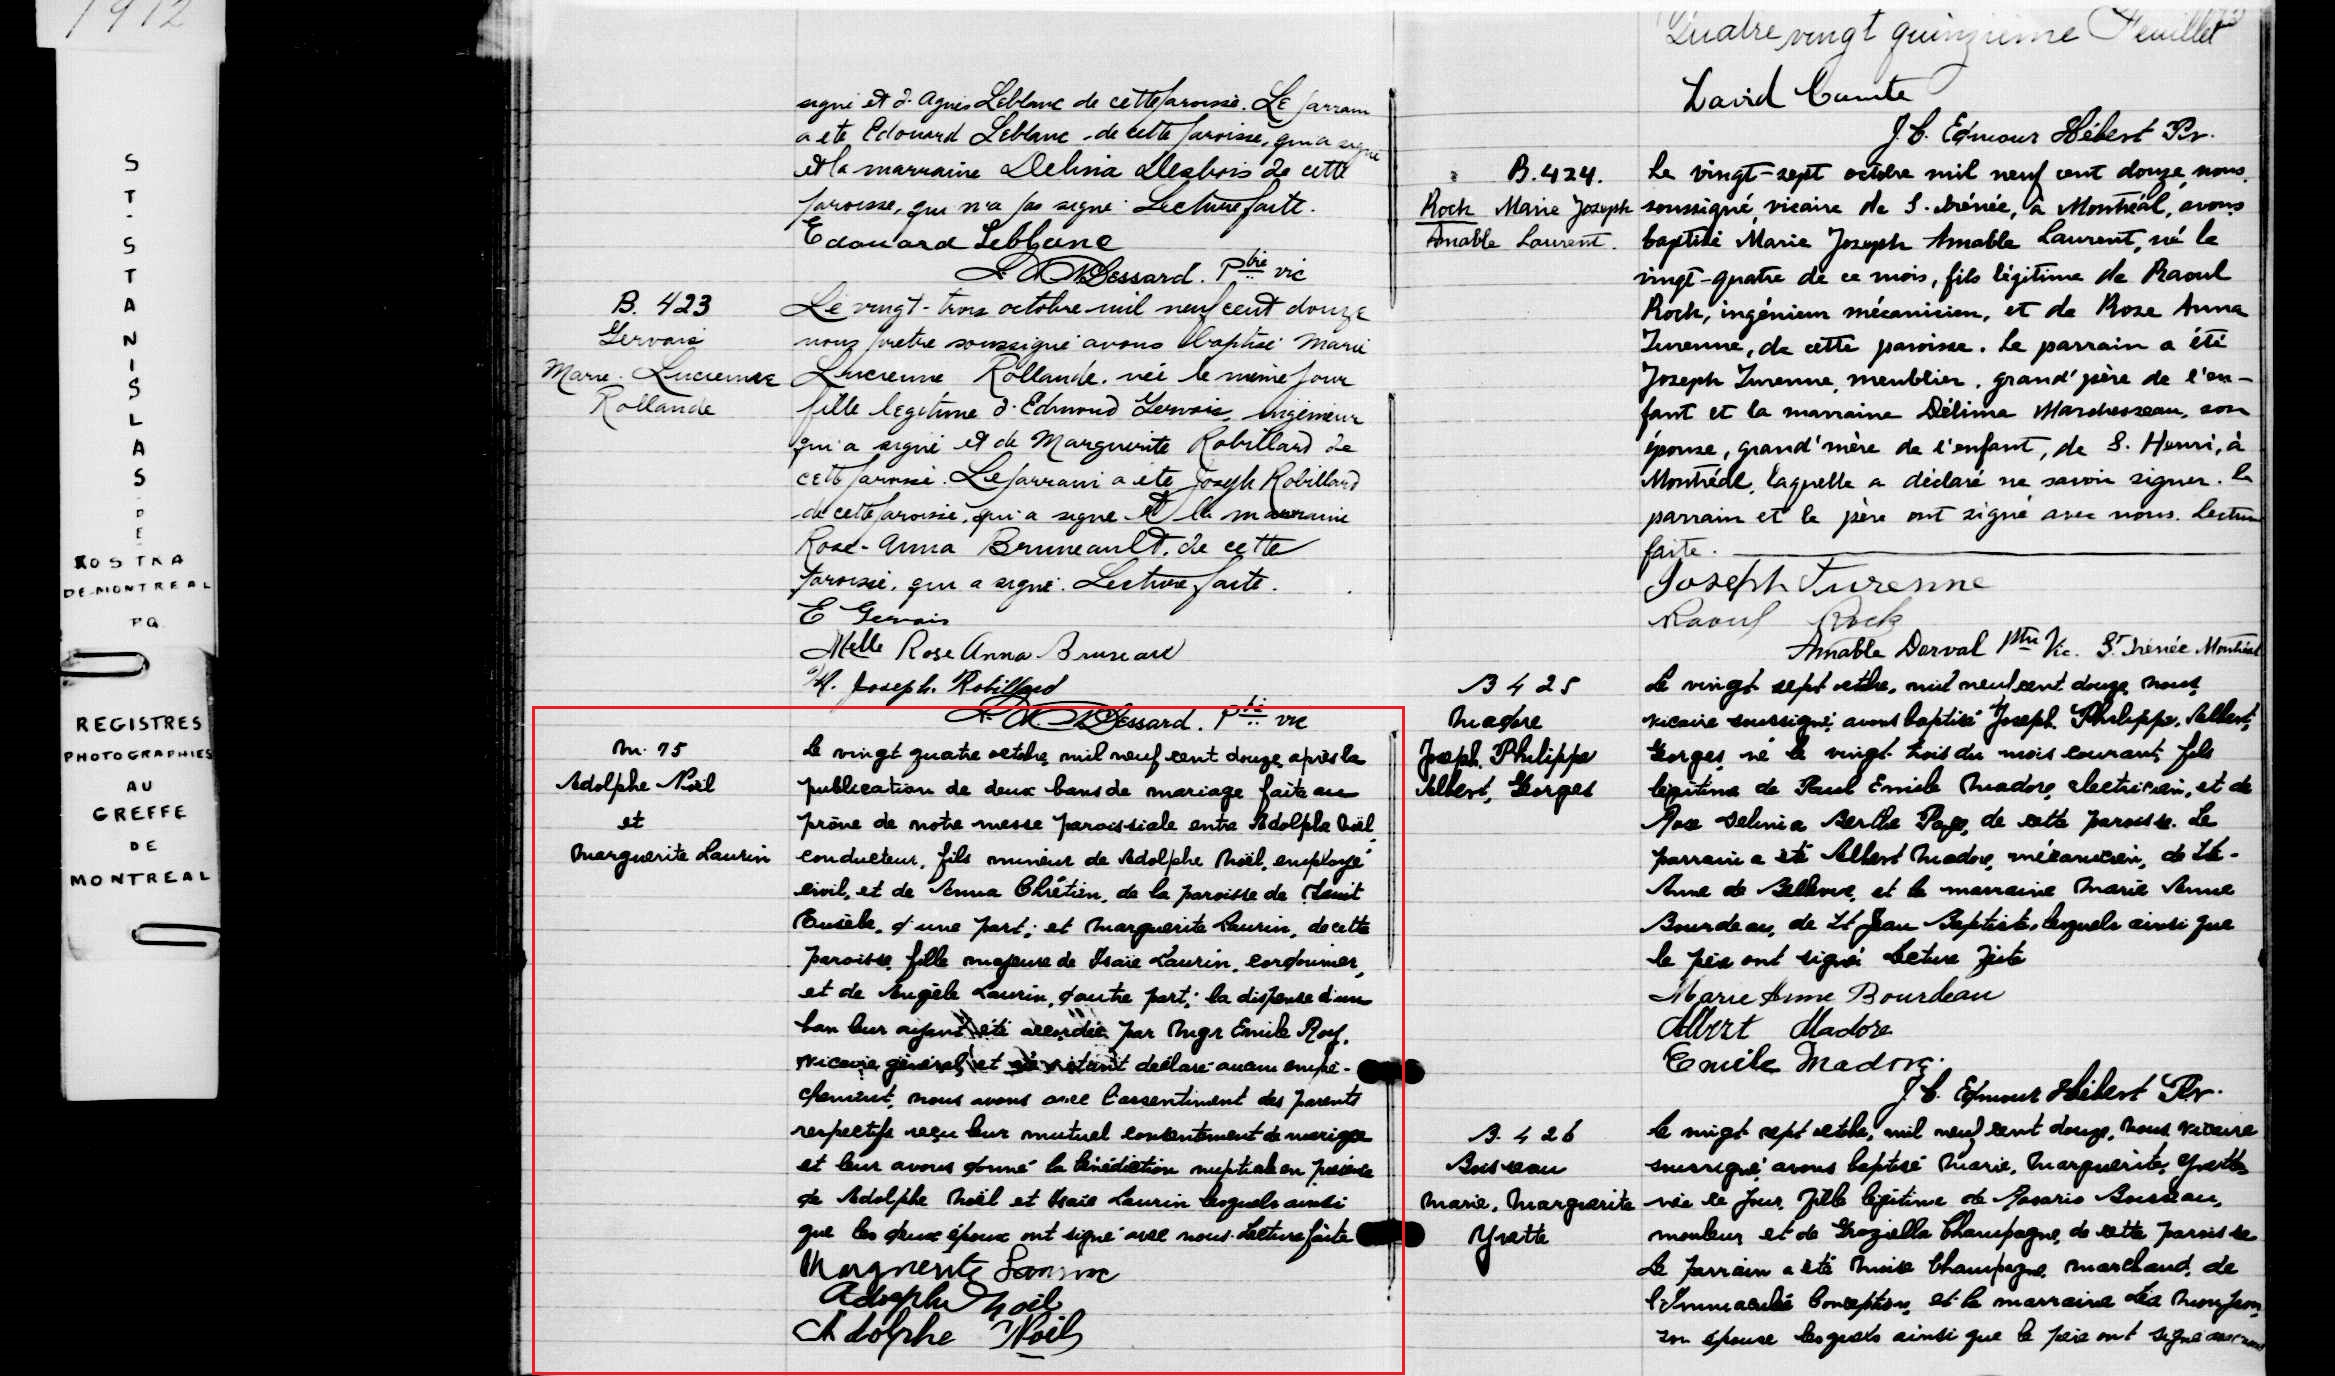 1912
ST-STANISLAS-DE
KOSTKA
DE-MONTREAL
P.Q.
REGISTRES
PHOTOGRAPHIES
AU
GREFFE
DE
MONTREAL
signé et d'Agnès Leblanc de cette paroisse. Le parrain
a été Edouard Leblanc de cette paroisse, qui a signé
et la marraine Delina Desbois de cette
paroisse, qui n'a pas signé. Lecture faite.
Edouard Leblanc
Dessard. Ptre vic
B. 423
Gervais
Marie-Lucienne
Rollande
Le vingt-trois octobre mil neuf cent douze
nous prêtre soussigné avons baptisé Marie
Lucienne Rollande, née le même jour
fille légitime d'Edmond Gervais, ingénieur
qui a signé et de Marguerite Robillard de
cette paroisse. Le parrain a été Joseph Robillard
de cette paroisse, qui a signé et la marraine
Rose-Anna Bruneault, de cette
paroisse, qui a signé. Lecture faite.
E Gervais
Melle Rose Anna Bruneau
M. Joseph Robillard
Dessard. Ptre vic
M. 75
Adolphe Noël
et
Marguerite Laurin
Le vingt quatre octobre, mil neuf cent douze, après la
publication de deux bans de mariage faite au
prône de notre messe paroissiale entre Adolphe Noël,
conducteur, fils mineur de Adolphe Noël, employé
civil, et de Anna Chrétien, de la paroisse de Saint
Eusèbe, d'une part; et Marguerite Laurin, de cette
paroisse, fille majeure de Isaïe Laurin, cordonnier,
et de Angèle Laurin, d'autre part; la dispense d'un
ban leur ayant été accordée par Mgr Emile Roy,
vicaire général, et ne s'étant déclaré aucun empê-
chement, nous avons avec l'assentiment des parents
respectifs reçu leur mutuel consentement de mariage
et leur avons donné la bénédiction nuptiale en présence
de Adolphe Noël et Isaïe Laurin lesquels ainsi
que les deux époux ont signé avec nous. Lecture faite
Marguerite Laurin
Adolphe Noël
Adolphe Noël
Quatre vingt quinzième Feuillet
David Comte
J. C. Edmour Hébert Ptr.
B. 424.
Rock Marie Joseph
Amable Laurent.
Le vingt-sept octobre mil neuf cent douze, nous,
soussigné, vicaire de S. Irénée, à Montréal, avons
baptisé Marie Joseph Amable Laurent, né le
vingt-quatre de ce mois, fils légitime de Raoul
Rock, ingénieur mécanicien, et de Rose Anna
Turenne, de cette paroisse. Le parrain a été
Joseph Turenne, meublier, grand'père de l'en-
fant et la marraine Délima Marchesseau, son
épouse, grand'mère de l'enfant, de S. Henri, à
Montréal, laquelle a déclaré ne savoir signer. Le
parrain et le père ont signé avec nous. Lecture
faite.
Joseph Turenne
Raoul Rock
Amable Dorval Ptre Vic. St Irénée Montréal
B 425
Madore
Joseph, Philippe
Albert, Georges
Le vingt sept octobre, mil neuf cent douze, nous,
vicaire soussigné, avons baptisé Joseph, Philippe, Albert,
Georges, né le vingt trois du mois courant, fils
légitime de Paul Emile Madore, electricien, et de
Rose Delinia Berthe Page, de cette paroisse. Le
parrain a été Albert Madore, mécanicien, de Ste-
Anne de Bellevue, et la marraine Marie Anne
Bourdeau, de St Jean Baptiste, lesquels ainsi que
le père ont signé. Lecture faite
Marie Anne Bourdeau
Albert Madore
Emile Madore.
J. C. Edmour Hébert Ptr.
B. 426
Busseau
Marie, Marguerite
Yvette
Le vingt sept octobre, mil neuf cent douze, nous vicaire
soussigné avons baptisé Marie, Marguerite, Yvette
née ce jour, fille légitime de Rosario Busseau,
mouleur et de Graziella Champagne, de cette paroisse
Le parrain a été Moïse Champagne, marchand, de
l'Immaculée Conception, et la marraine Léa Monjeon,
son épouse lesquels ainsi que le père ont signé avec nous